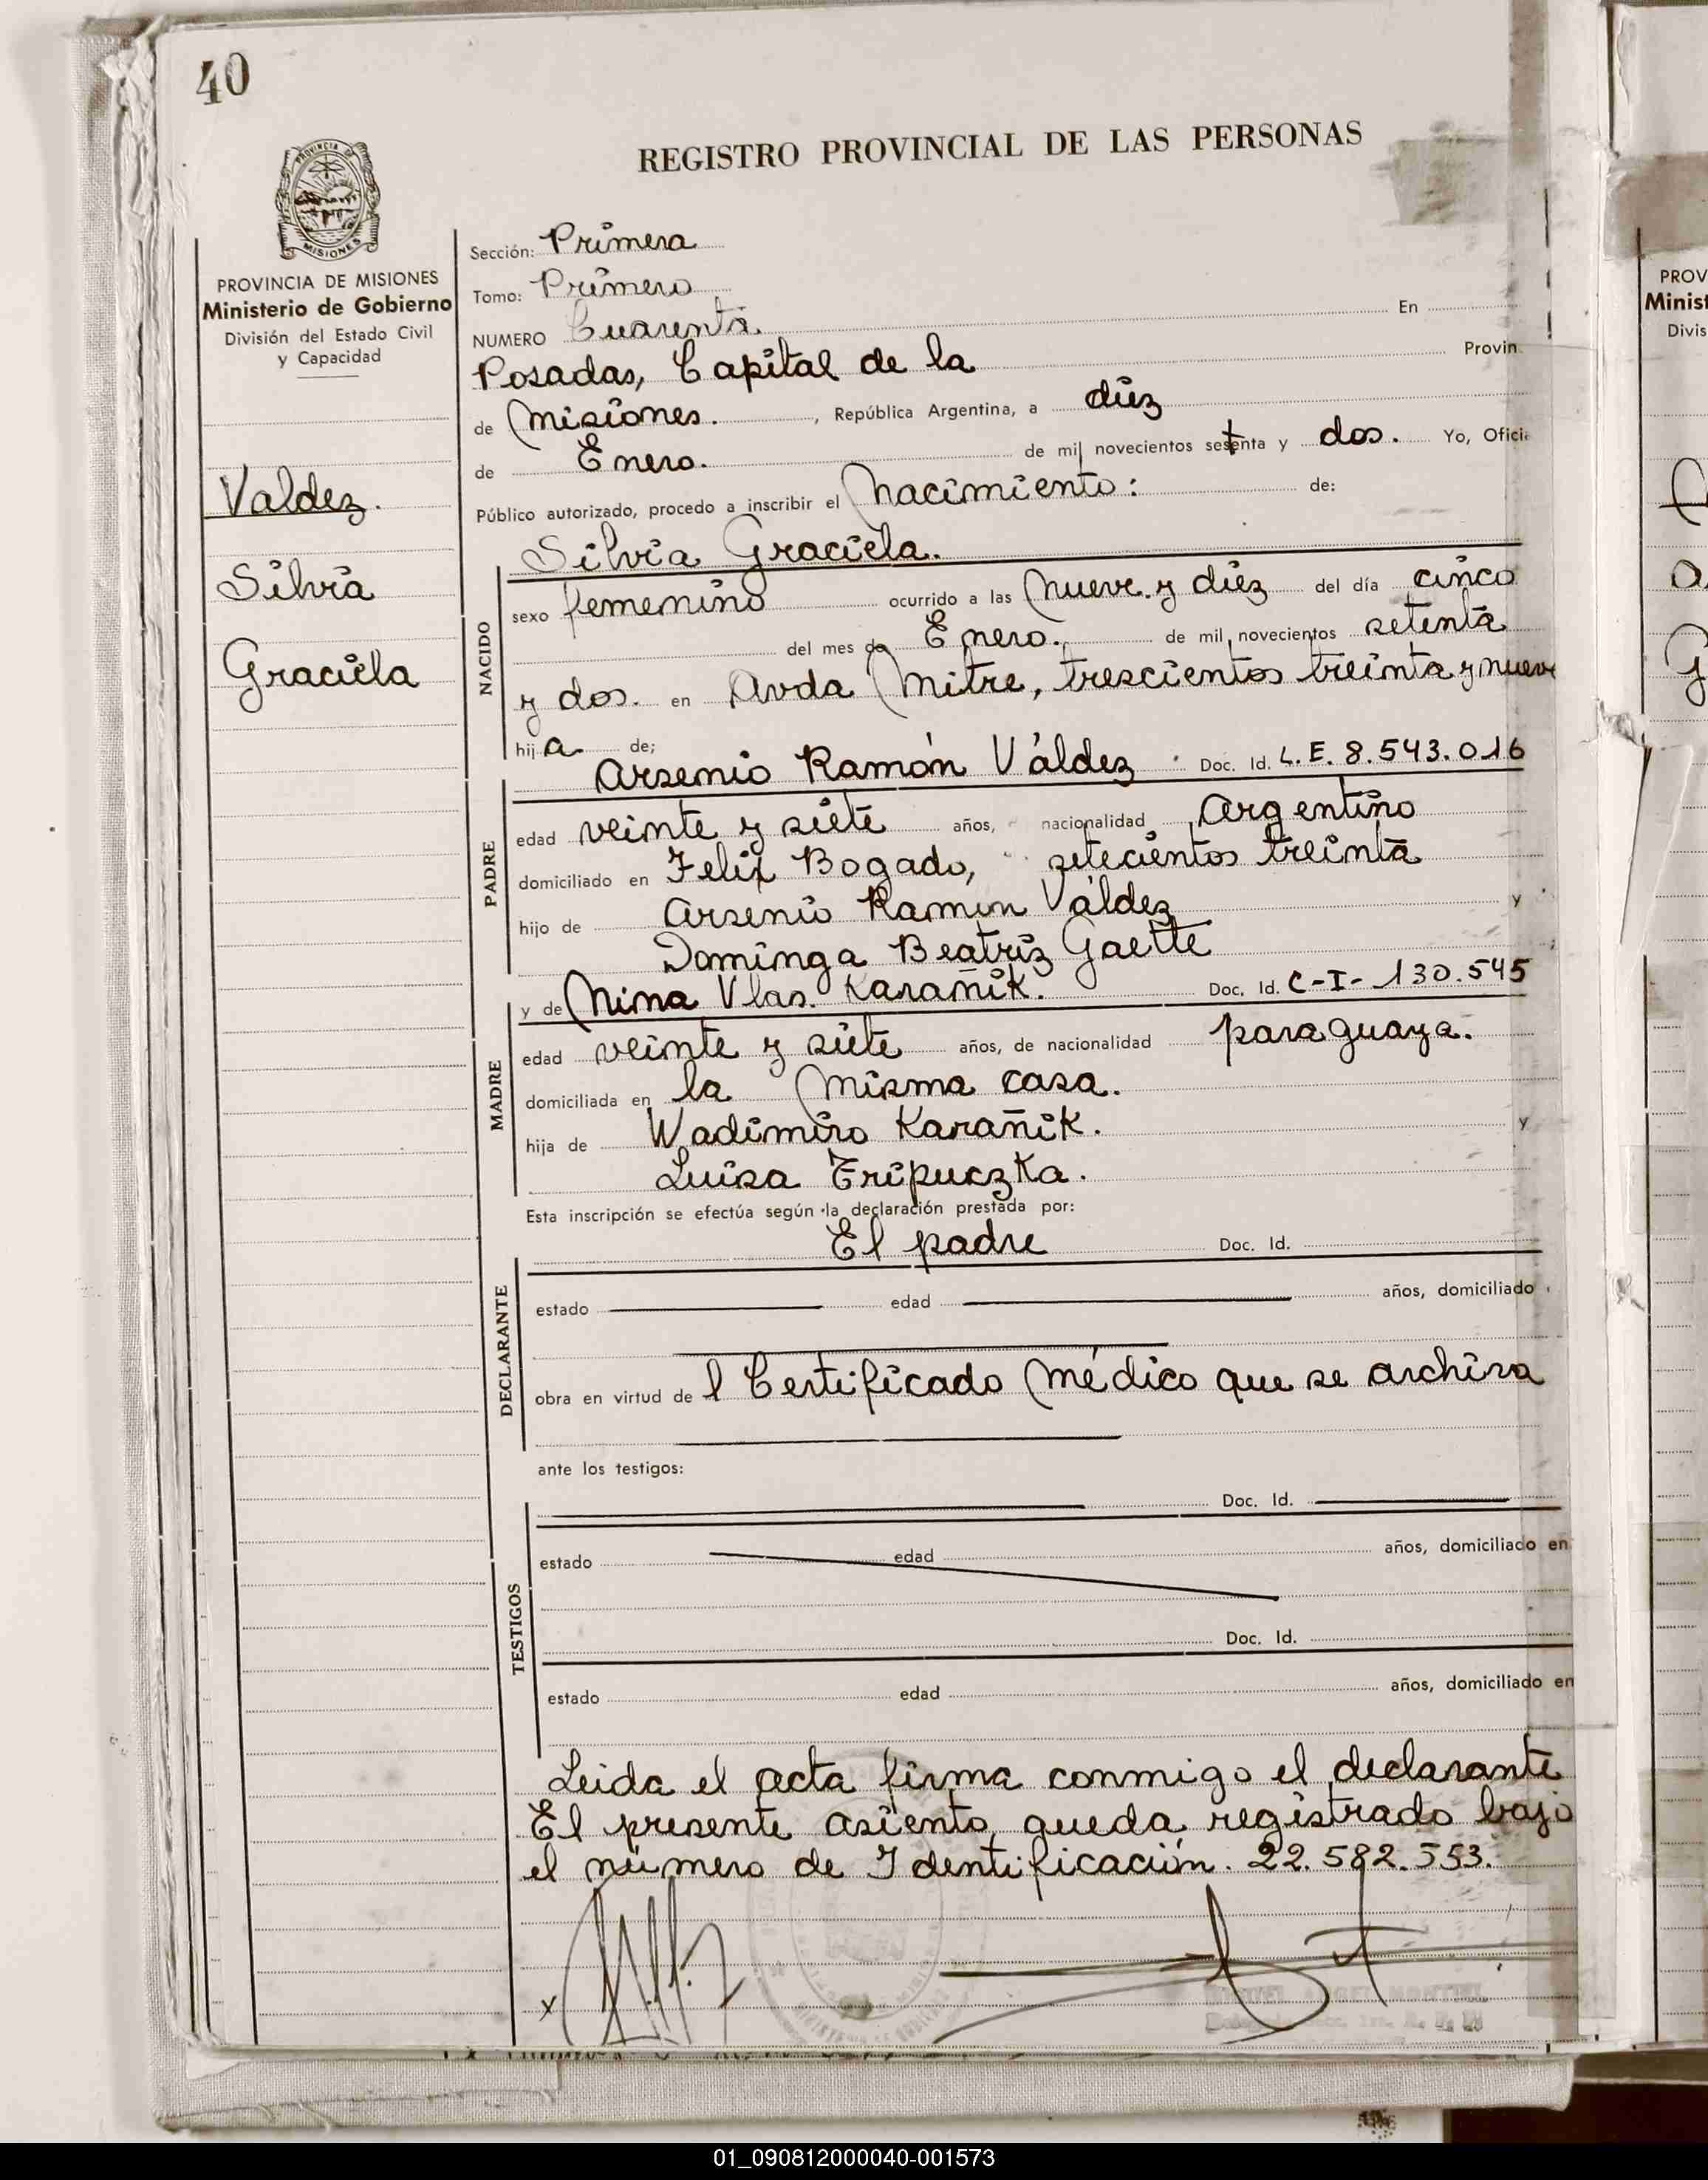 40
REGISTRO PROVINCIAL DE LAS PERSONAS
PROVINCIA DE
MISIONES
PROVINCIA DE MISIONES
Ministerio de Gobierno
División del Estado Civil
y Capacidad
Valdez.
Silvia
Graciela
Sección: Primera
Tomo: Primero
NUMERO Cuarenta. En
Posadas, Capital de la Provin
de Misiones. , República Argentina, a diez
de Enero. de mil novecientos setenta y dos. Yo, Ofici
Público autorizado, procedo a inscribir el Nacimiento: de:
Silvia Graciela.
NACIDO
sexo femenino ocurrido a las Nueve y diez del día cinco
del mes de Enero. de mil novecientos setenta
y dos. en Avda Mitre, trescientos treinta y nueve
hija de;
Arsenio Ramón Váldez Doc. Id. L.E. 8.543.016
PADRE
edad veinte y siete años, nacionalidad Argentino
domiciliado en Felix Bogado, setecientos treinta
hijo de Arsenio Ramon Váldez y
Dominga Beatriz Gaette
y de Nina Vlas. Karañik. Doc. Id. C-I- 130.545
MADRE
edad veinte y siete años, de nacionalidad paraguaya.
domiciliada en la misma casa.
hija de Wadimiro Karañik. y
Luisa Tripuczka.
Esta inscripción se efectúa según la declaración prestada por:
El padre Doc. Id.
DECLARANTE
estado edad años, domiciliado
obra en virtud de l Certificado Médico que se archiva
ante los testigos:
Doc. Id.
TESTIGOS
estado edad años, domiciliado en
Doc. Id.
estado edad años, domiciliado en
Leida el acta firma conmigo el declarante
El presente asiento queda registrado bajo
el número de Identificación. 22.582.553.
x
PROV
Minist
Divis
01_090812000040-001573